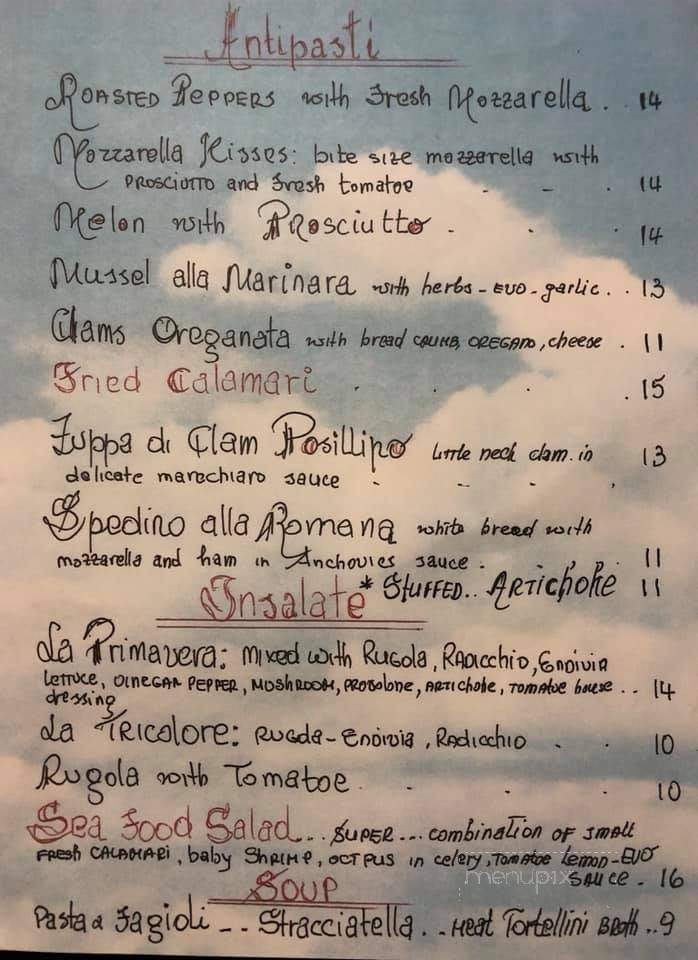 Antipasti
Roasted Peppers with Fresh Mozzarella . . 14
Mozzarella Kisses: bite size mozzarella with
PROSCIUTTO and fresh tomatoe - - . 14
Melon with Prosciutto - . . 14
Mussel alla Marinara with herbs - EVO - garlic . . 13
Clams Oreganata with bread CRUMB, OREGANO, cheese . 11
Fried Calamari . . . . 15
Zuppa di Clam Posillipo Little neck clam. in 13
delicate marechiaro sauce - - - ,
Spedino alla Romana white bread with
mozzarella and ham in Anchovies sauce . . . . 11
* Stuffed.. Artichoke 11
Insalate
La Primavera: mixed with Rugola, Radicchio, Endivia
Lettuce, VINEGAR PEPPER, MUSHROOM, PROVOLONE, ARTICHOKE, TOMATOE house . . 14
dressing
La Tricolore: Rugola - Endivia, Radicchio . . 10
Rugola with Tomatoe . . . 10
Sea Food Salad... SUPER... combination of small
FRESH CALAMARI, baby SHRIMP, OCTPUS in celery, TOMATOE Lemon - EVO
menupix
SAUCE - 16
SOUP
Pasta e Fagioli - - Stracciatella . . Meat Tortellini Broth . . 9